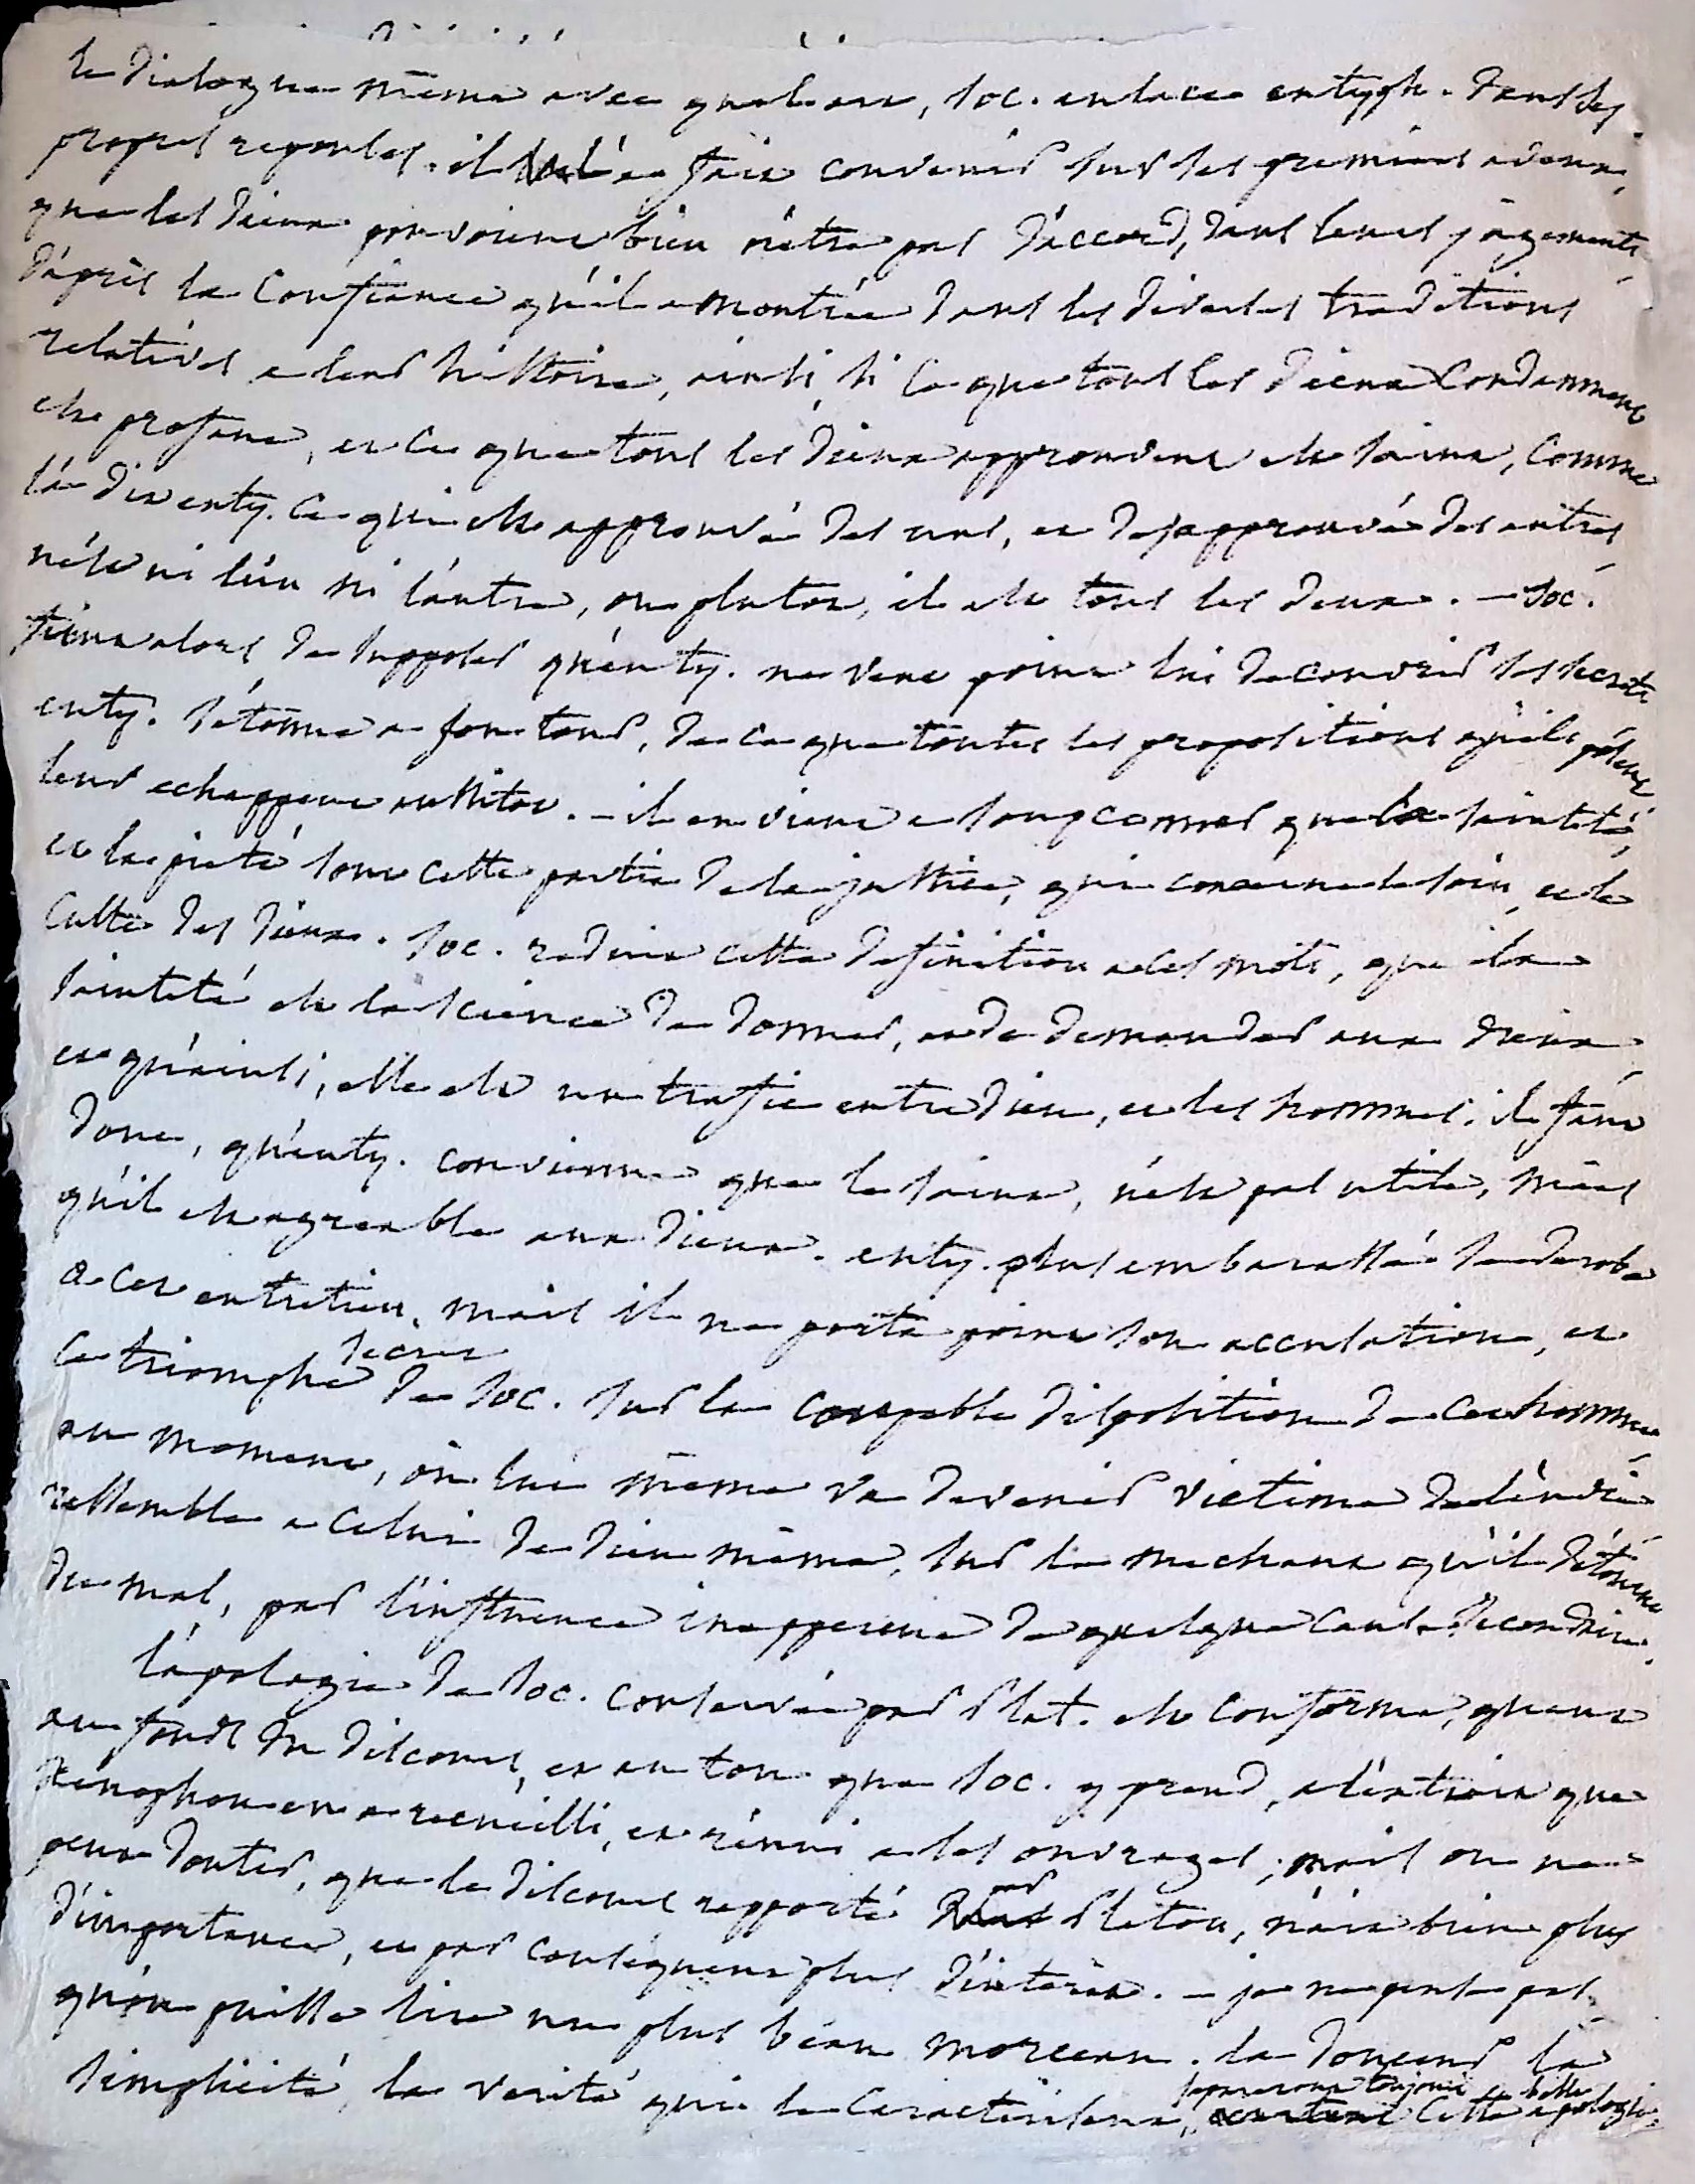 le dialogue même avec quel art, Soc. enlace entyph. dans ses
propres reponses. il l'a fait convenir sur ses premiers aveux,
que les dieux pouvoient bien n'être pas d'accord, dans leurs jugements
d'après la confiance qu'il a montrée dans les diverses traditions
relatives a leur histoire, ainsi, si ce que tous les dieux condamnent
est profane, et ce que tous les dieux approuvent est saint, comme
l'a dit enty. ce qui est approuvé des uns, et desapprouvé des autres
n'est ni l'un ni l'autre, ou plutot, il est tous les deux. – Soc.
feint alors de supposer qu'enty. ne veut point lui decouvrir ses secrets
enty. s'étonne a son tour, de ce que toutes les propositions qu'ils posent
leur echappent aussitot. – il en vient a soupconner que la sainteté,
et la pieté sont cette partie de la justice, qui concerne le soin, et le
culte des dieux. Soc. reduit cette definition a ces mots, que la
sainteté est la science de donner, et de demander aux dieux
et qu'ainsi, elle est un trafic entre dieu, et les hommes. il faut
donc, qu'enty. convienne que le saint, n'est pas utile, mais
qu'il est agreable aux dieux. enty. plus embarassé se derobe
a cet entretien, mais il ne porte point son accusation, et
ce triomphe secret de Soc. sur la coupable disposition de cet homme
au moment, où lui même va devenir victime de l'envie
ressemble a celui de dieu même, sur le mechant qu'il détourne
du mal, par l'influence inapperçue de quelque cause secondaire.
l'apologie de Soc. conservée par Plat. est conforme, quant
au fonds du discours, et au ton que Soc. y prend, a l'extrait que
Xenophon en a recueilli, et réuni a ses ouvrages; mais on ne
peut douter, que le discours rapporté par Platon, n'ait bien plus
d'importance, et par conséquent plus d'intérêt. – je ne pense pas
qu'on puisse lire un plus beau morceau. la douceur la
simplicité, la verité qui le caractérisent, paraitront toujours cette belle apologie